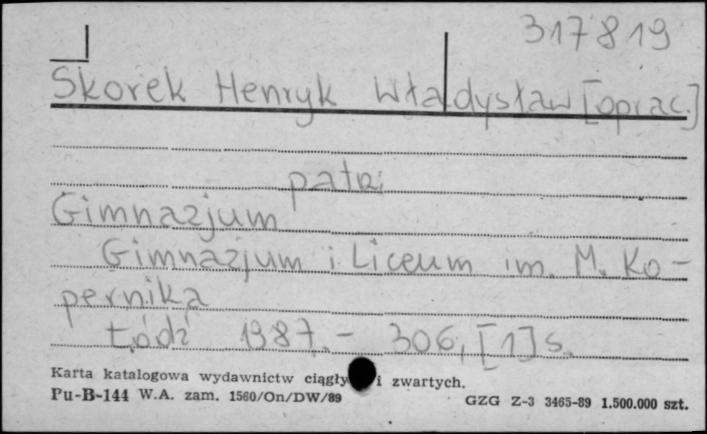 317819
Skorek Henryk Władysław [oprac.]
patrz
Gimnazjum
Gimnazjum i Liceum im. M. Ko-
pernika
Łódź 1987.- 306, [1] s.
Karta katalogowa wydawnictw ciągły i zwartych.
Pu-B-144 W.A. zam. 1560/On/DW/89 GZG Z-3 3465-89 1.500.000 szt.